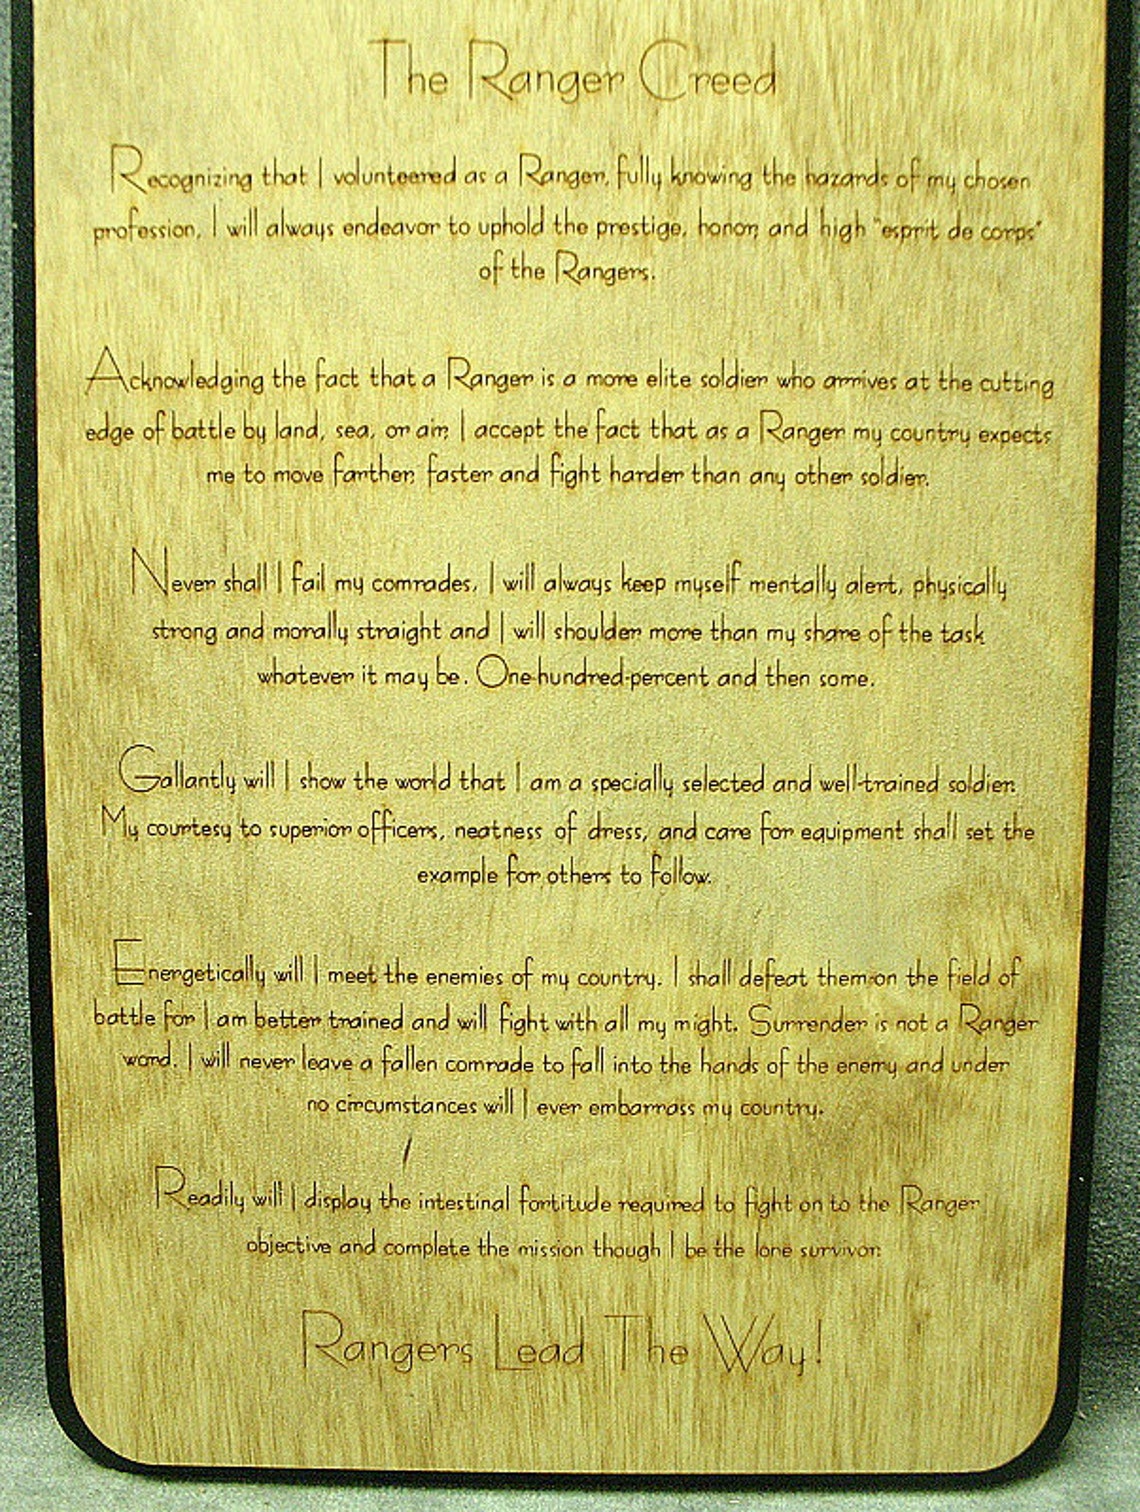 The Ranger Creed
Recognizing that I volunteered as a Ranger, fully knowing the hazards of my chosen
profession, I will always endeavor to uphold the prestige, honor, and high "esprit de corps"
of the Rangers.
Acknowledging the fact that a Ranger is a more elite soldier who arrives at the cutting
edge of battle by land, sea, or air, I accept the fact that as a Ranger my country expects
me to move farther, faster and fight harder than any other soldier.
Never shall I fail my comrades, I will always keep myself mentally alert, physically
strong and morally straight and I will shoulder more than my share of the task
whatever it may be. One-hundred-percent and then some.
Gallantly will I show the world that I am a specially selected and well-trained soldier.
My courtesy to superior officers, neatness of dress, and care for equipment shall set the
example for others to follow.
Energetically will I meet the enemies of my country. I shall defeat them on the field of
battle for I am better trained and will fight with all my might. Surrender is not a Ranger
word. I will never leave a fallen comrade to fall into the hands of the enemy and under
no circumstances will I ever embarrass my country.
Readily will I display the intestinal fortitude required to fight on to the Ranger
objective and complete the mission though I be the lone survivor.
Rangers Lead The Way!